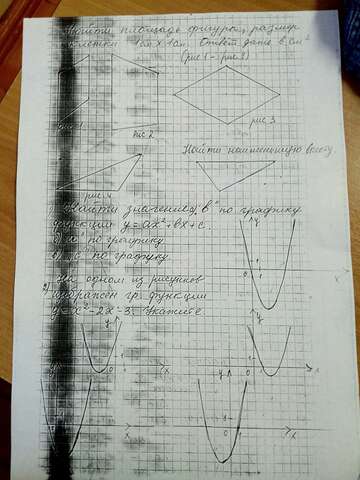 Найти площадь фигуры, размер
клетки 1см х 1см. Ответ дать в см²
(рис 1 – рис 3)
рис 1
рис 2
рис 3
Найти наименьшую высоту.
рис. 4
Найти значение "в" по графику
функции y = ax² + bx + c.
б) а по графику
в) "с" по графику.
На одном из рисунков
изображен гр. функции
y = x² – 2x – 3. Укажите
y
0
1
x
y
1
0
x
y
1
0
x
y
x
y
0
x